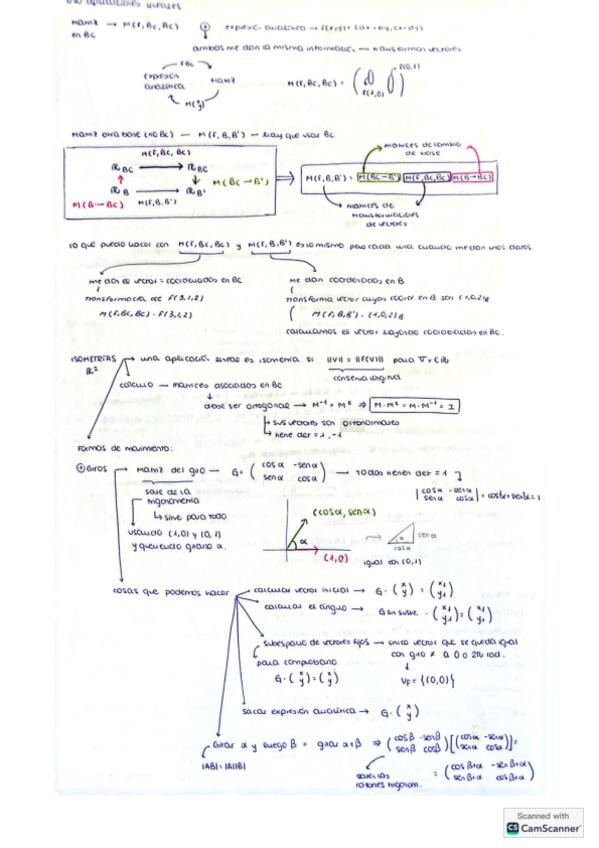 matriz → M(F, BC, BC) ⊕ expresión analítica → F(x,y) = (ax + by, cx + dy)
en BC
ambos me dan la misma información — transforman vectores
FBC
expresión analítica
matriz
M(F, BC, BC) =
F(1,0)
F(0,1)
matriz otra base (no BC) — M(F, B, B') — hay que usar BC
M(F, BC, BC)
ℝ BC → ℝ BC
M(BC→B')
ℝ B → ℝ B'
M(B→BC) M(F, B, B')
matrices de cambio de base
M(F, B, B') = M(BC→B') M(F, BC, BC) M(B→BC)
matrices de transformaciones de vectores
lo que puedo hacer con M(F, BC, BC) y M(F, B, B') es lo mismo pero cada una cuando me dan unos datos
me dan el vector = coordenadas en BC
transformación de F(3,1,2)
M(F, BC, BC) · F(3,1,2)
me dan coordenadas en B
transforma vector cuyas coord en B son (1,0,2)B
M(F, B, B') · (1,0,2)B
calculamos el vector hayando coordenadas en BC.
ISOMETRÍAS ℝ²
una aplicación lineal es isometría si ||v|| = ||F(v)|| para ∀ v ∈
conserva longitud
cálculo — matrices asociadas en BC
debe ser ortogonal → M⁻¹ = Mᵗ ⇒ M·Mᵗ = M·M⁻¹ = I
sus vectores son ortonormales
tiene det = 1, -1
Formas de movimiento:
⊕ Giros
matriz del giro — G = (cos α -sen α
sen α cos α) — Todos tienen det = 1
|cos α -sen α
sen α cos α| =
sale de la trigonometría
sirve para todo
usando (1,0) y (0,1)
y queriendo girarlo α.
(cos α, sen α)
α
(1,0)
sen α
cos α
igual con (0,1)
cosas que podemos hacer
calcular vector inicial → G · (x y) = (x1 y1)
calcular el ángulo → G · (x1 y1) = (x1 y1)
subespacio de vectores fijos → único vector que se queda igual
con giro ≠ a 0 o 2π rad.
para comprobarlo
G · (x y) = (x y)
VF = {(0,0)}
sacar expresión analítica → G · (x y)
Girar α y luego β = girar α+β ⇒ (cos β -sen β
sen β cos β) [(cos α -sen α
sen α cos α)] =
|AB| = |A||B|
= (cos β+α -sen β+α
sen β+α cos β+α)
Scanned with
CS CamScanner